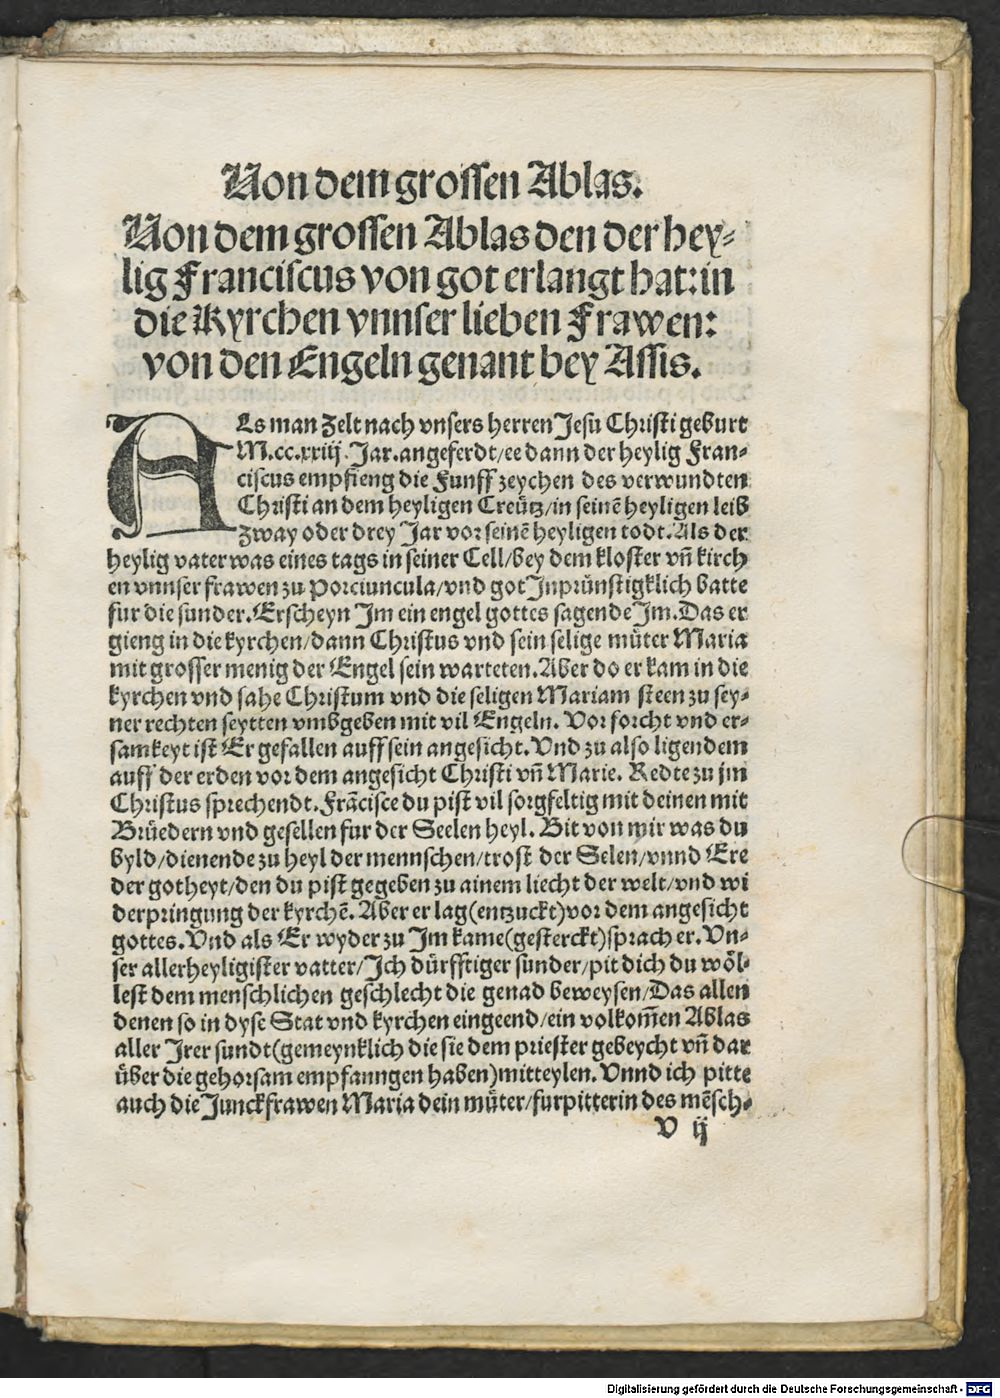 Von dem grossen Ablas.
Von dem grossen Ablas den der hey⸗
lig Franciscus von got erlangt hat: in
die Kyrchen vnnser lieben Frawen:
von den Engeln genant bey Assis.
ALs man zelt nach vnsers herren Jesu Christi geburt
M.cc.xxiij. Jar. angeferdt/ee dann der heylig Fran⸗
ciscus empfieng die Funff zeychen des verwundten
Christi an dem heyligen Creütz/in seinē heyligen leib
zway oder drey Jar vor seinē heyligen todt. Als der
heylig vater was eines tags in seiner Cell/bey dem kloster vn̄ kirch
en vnnser frawen zu Porciuncula/vnd got Jnprünstigklich batte
fur die sunder. Erscheyn Jm ein engel gottes sagende Jm. Das er
gieng in die kyrchen/dann Christus vnd sein selige müter Maria
mit grosser menig der Engel sein warteten. Aber do er kam in die
kyrchen vnd sahe Christum vnd die seligen Mariam steen zu sey⸗
ner rechten seytten vmbgeben mit vil Engeln. Vor forcht vnd er⸗
samkeyt ist Er gefallen auff sein angesicht. Vnd zu also ligendem
auff der erden vor dem angesicht Christi vn̄ Marie. Redte zu jm
Christus sprechendt. Frācisce du pist vil sorgfeltig mit deinen mit
Brüedern vnd gesellen fur der Seelen heyl. Bit von mir was du
byld/dienende zu heyl der mennschen/trost der Selen/vnnd Ere
der gotheyt/den du pist gegeben zu ainem liecht der welt/vnd wi
derpringung der kyrchē. Aber er lag(entzuckt)vor dem angesicht
gottes. Vnd als Er wyder zu Jm kame(gesterckt)sprach er. Vn⸗
ser allerheyligister vatter/Jch dürfftiger sunder/pit dich du wöl⸗
lest dem menschlichen geschlecht die genad beweysen/Das allen
denen so in dyse Stat vnd kyrchen eingeend/ein volkom̄en Ablas
aller Jrer sundt(gemeynklich die sie dem priester gebeycht vn̄ dar
über die gehorsam empfanngen haben)mitteylen. Vnnd ich pitte
auch die Junckfrawen Maria dein müter/furpitterin des mēsch⸗
V ij
Digitalisierung gefördert durch die Deutsche Forschungsgemeinschaft - DFG